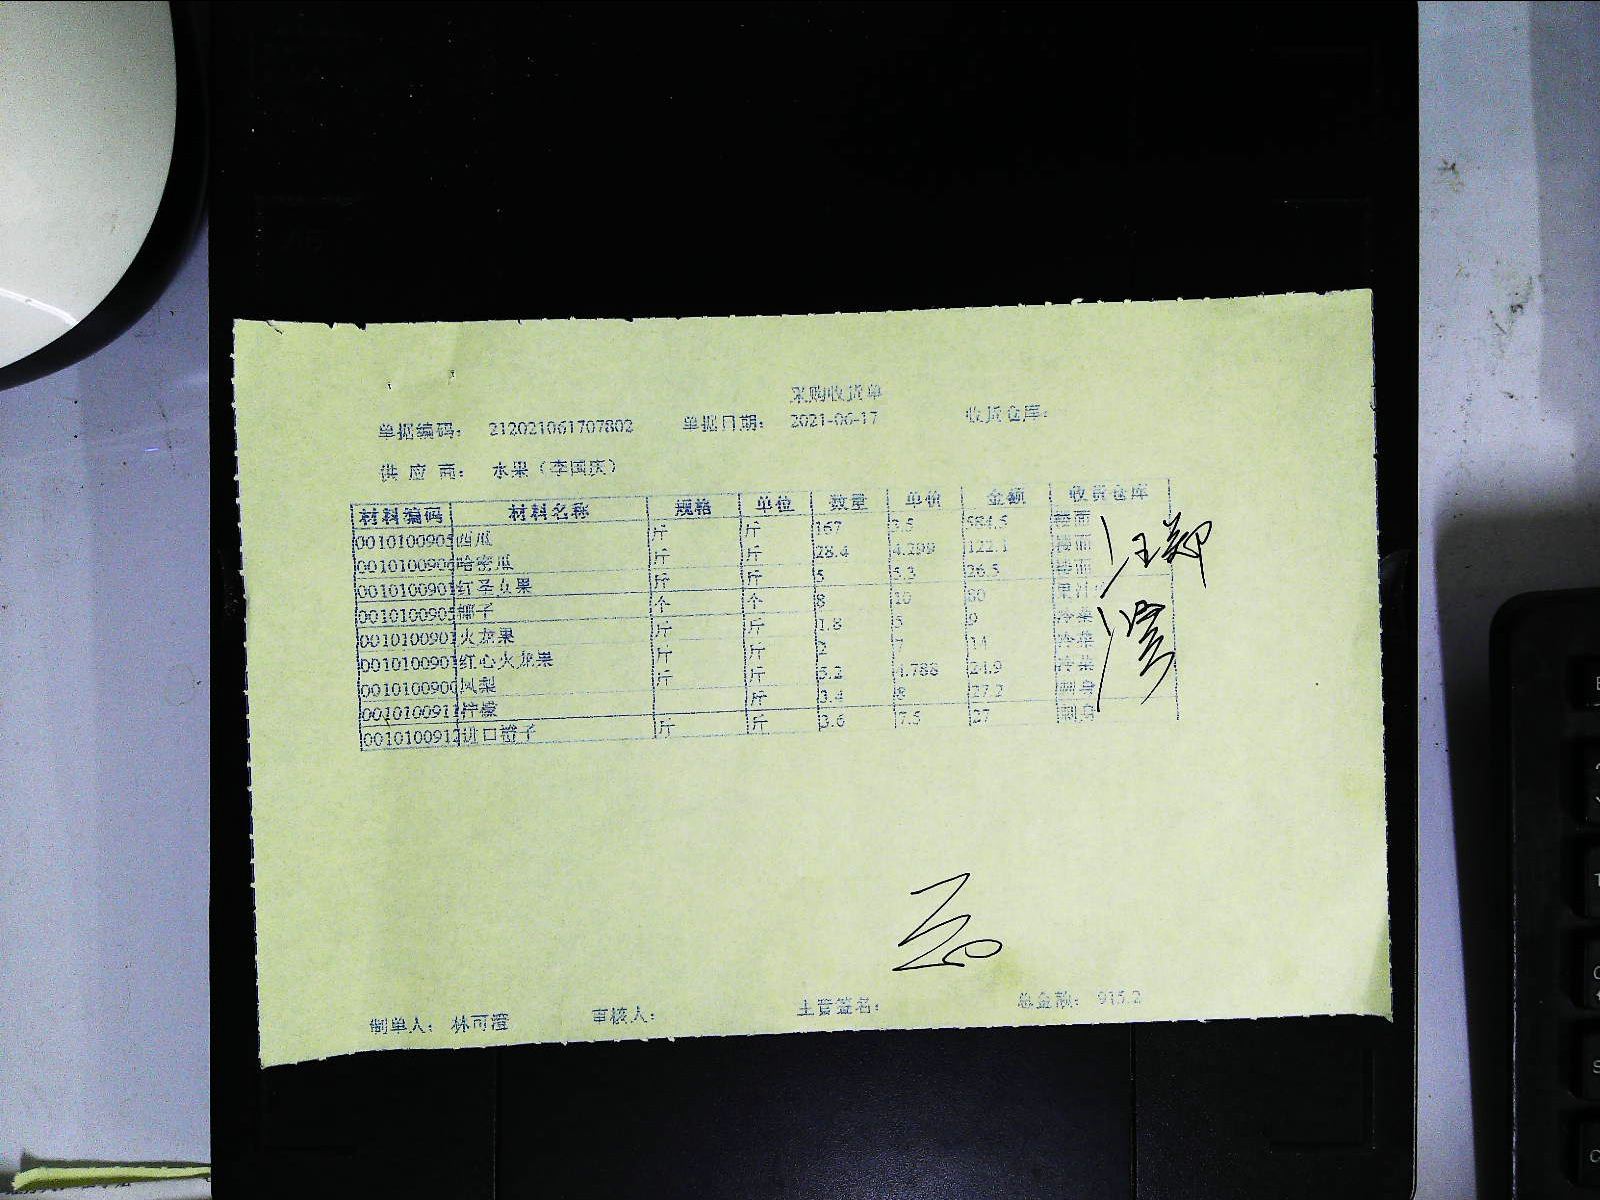 采购收货单
单据编码： 212021061707802 单据日期： 2021-06-17 收货仓库：
供 应 商： 水果（李国庆）
材料编码 材料名称 规格 单位 数量 单价 金额 收货仓库
0010100905 西瓜 斤 斤 167 3.5 584.5 楼面
0010100906 哈密瓜 斤 斤 28.4 4.299 122.1 楼面
001010090 红圣女果 斤 斤 5 5.3 26.5 楼面
0010100905 椰子 个 个 8 10 80 果汁
001010090 火龙果 斤 斤 1.8 5 9 冷菜
001010090 红心火龙果 斤 斤 2 7 14 冷菜
0010100900 凤梨 斤 斤 5.2 4.788 24.9 冷菜
001010091 柠檬 斤 3.4 8 27.2 刺身
0010100912 进口橙子 斤 斤 3.6 7.5 27 刺身
制单人： 林可澄 审核人： 主管签名： 总金额： 915.2